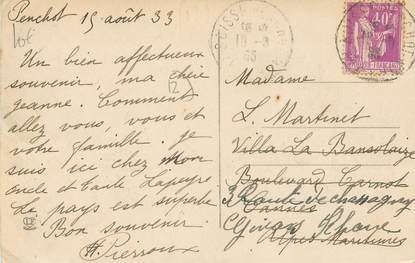 Penchot 15 août 33
Lot
Un bien affectueux
souvenir, ma chère
jeanne. Comment
allez vous, vous et
votre famille. je
suis ici chez mon
oncle et tante Lapeyre
le pays est superbe
Bon souvenir.
Pierroux
12
40c
Madame
L. Martinet
Villa La
Boulevard Carnot
Cannes
Alpes Maritimes
3 Route de chassagny
Givors Rhône